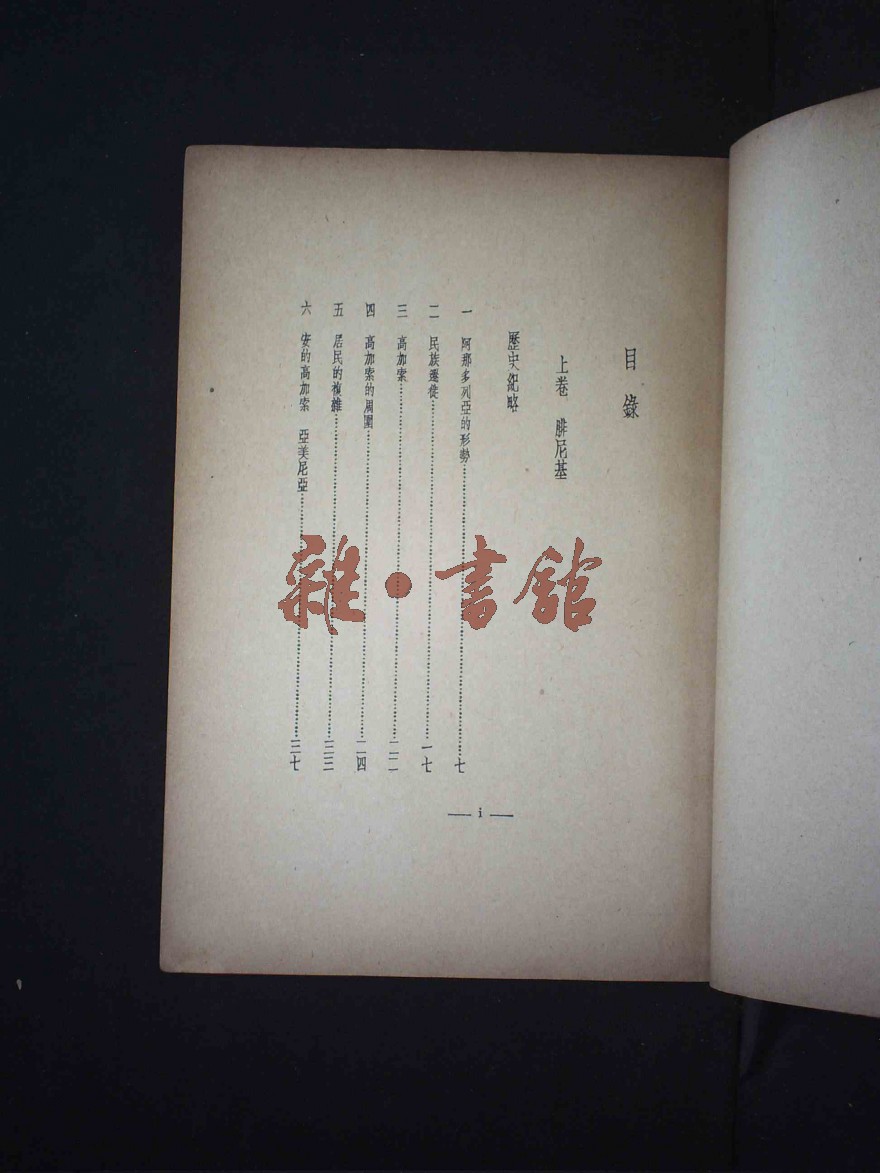 目錄
上卷 腓尼基
歷史紀略
一 阿那多列亞的形勢……七
二 民族遷徙……一七
三 高加索……二二
四 高加索的周圍……二四
五 居民的複雜……三三
六 安的高加索 亞美尼亞……三七
— i —
雜·書館